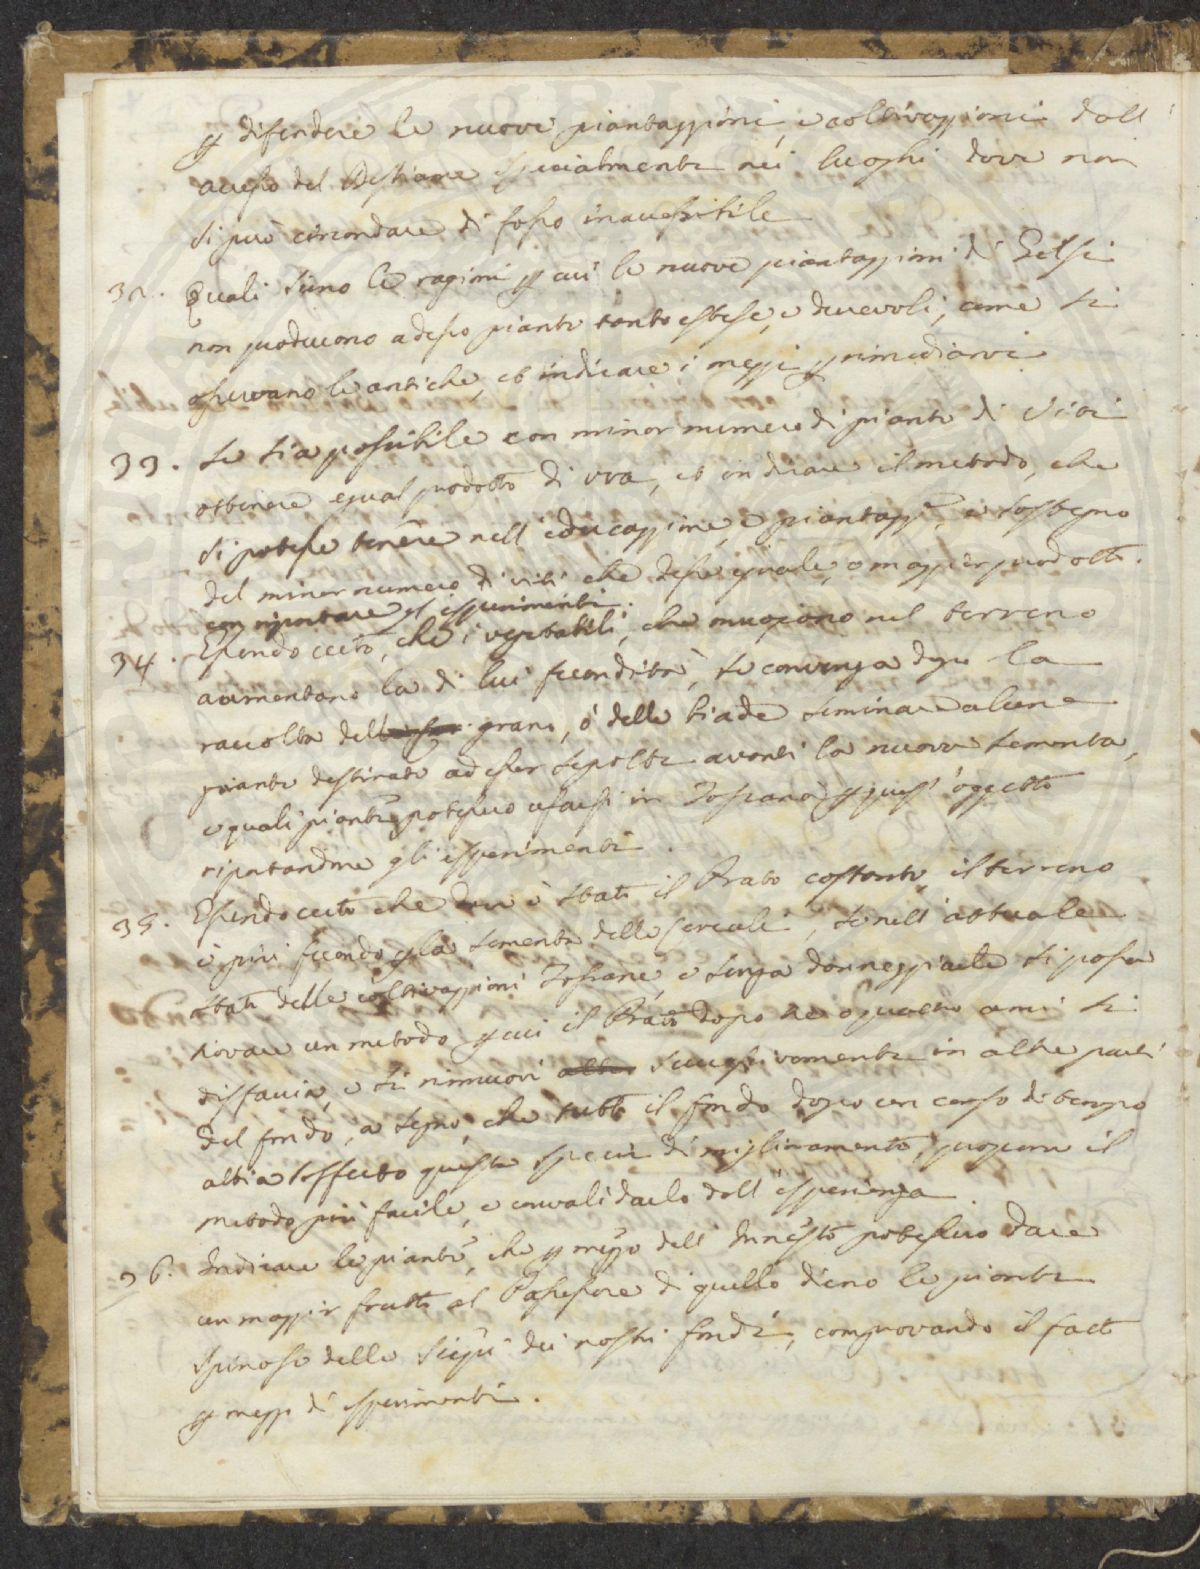 p difendere le nuove piantazzioni, e coltivazzioni dall'
accesso del Bestiame specialmente nei luoghi dove non
si può circondare di fosso inaccessibile
32. Quali siano le ragioni p cui le nuove piantazzioni di Gelsi
non producono adesso piante tanto estese, e durevoli, come si
osservano le antiche, et indicare i mezzi p rimediarvi
33. Se sia possibile con minor numero di piante di Viti
ottenere egual prodotto di uva, et indicare il metodo, che
si potesse tenere nell'educazzione, e piantazz.e, e sostegno
del minor numero di viti che desse eguale, o maggior prodotto.
con riportare gl'esperimenti.
34. Essendo certo, che i vegetabili, che muoiono nel terreno
aumentano la di lui fecondità, se convenga dopo la
raccolta del grano, ò delle biade seminare alcune
piante destinate ad esser sepolte avanti la nuova sementa,
e quali piante potessero usarsi in Toscana p quest'oggetto
riportandone gli esperimenti.
35. Essendo certo che dove è stato il Prato costante, il terreno
è più fecondo p la sementa delle Cereali, se nell'attuale
stato delle coltivazzioni Toscane, e senza danneggiarle si possa
trovare un metodo p cui il Prato dopo tre o quattro anni si
disfaccia, e si rinnuovi successivamente in altre parti
del fondo, a segno, che tutto il fondo dopo un corso di tempo
abbia sofferto questa specie di miglioramento, proporre il
metodo più facile, e convalidarlo dall'esperienza.
36. Indicare le piante, che p mezzo dell'Innesto potessero dare
un maggior frutto al Possessore di quello dieno le piante
spinose delle Siepi dei nostri fondi, comprovando il fatto
p mezzo di esperimenti.